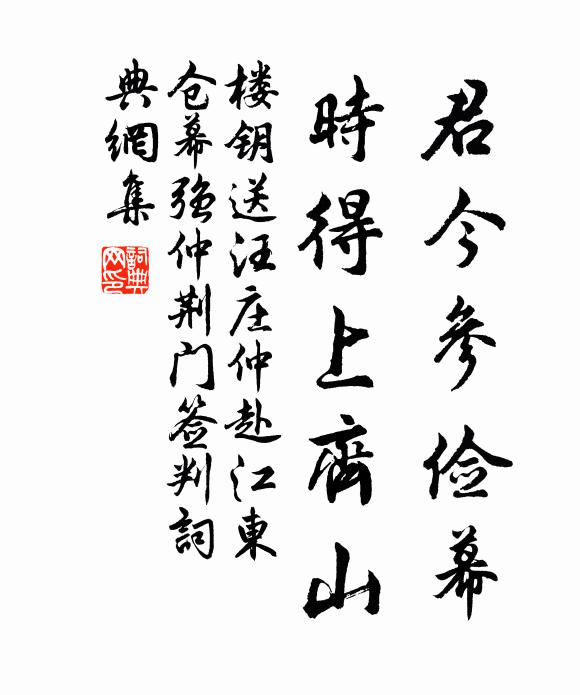 君今參俭幕
時得上齊山
楼钥送汪庄仲赴江東
仓幕强仲荆门签判詞
典網集
詞典网印